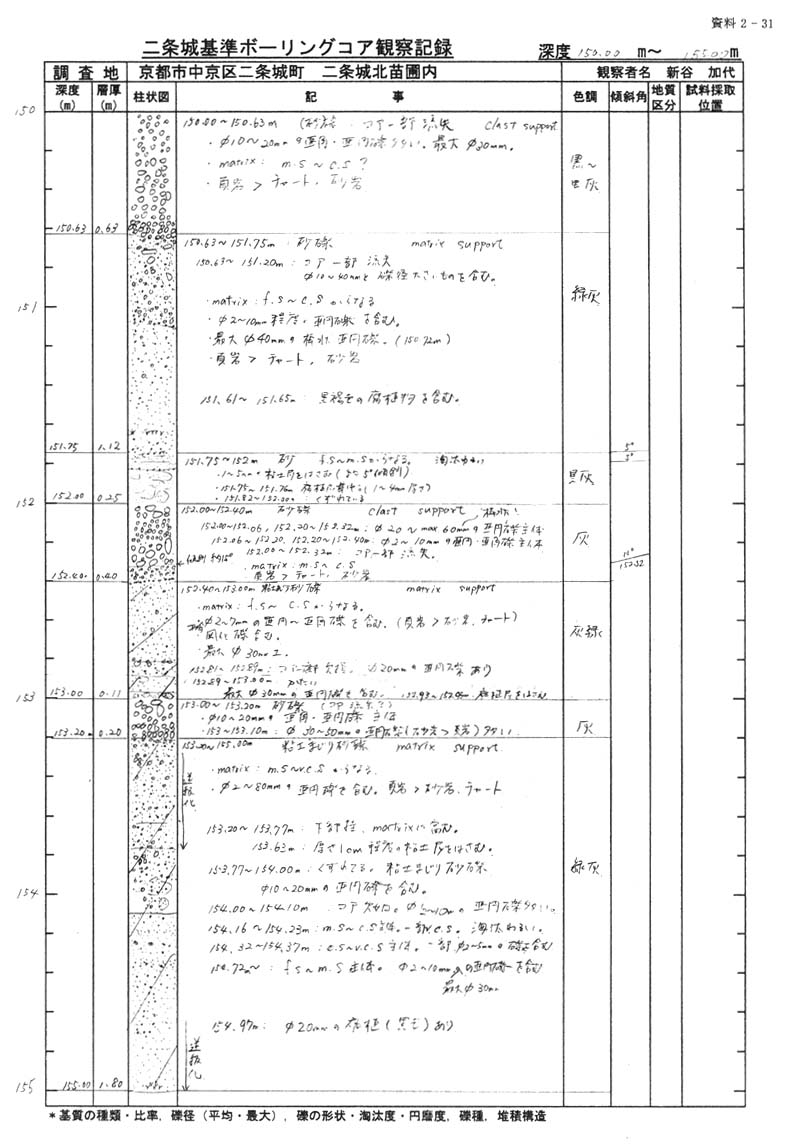 資料2-31
二条城基準ボーリングコア観察記録
深度 150.00 m～ 155.00 m
調査地 京都市中京区二条城町 二条城北苗圃内 観察者名 新谷 加代
深度(m) 層厚(m) 柱状図 記事 色調 傾斜角 地質区分 試料採取位置
150
150.00～150.63m (砂礫・コア一部流失 clast support
・φ10～20mmの亜角・亜円礫多い。最大φ30mm。
・matrix: m.s～c.s?
・頁岩＞チャート、砂岩
黒～
150.63 0.63
150.63～151.75m : 砂礫 matrix support
150.63～151.20m : コア一部流失
φ10～40mmと礫径大きいものを含む。
緑灰
151
・matrix: f.s～c.sからなる
・φ2～10mm程度・亜円礫を含む。
・最大φ40mmの 亜円礫。(150.72m)
・頁岩＞チャート、砂岩
151.61～151.65m : 黒褐色の腐植物を含む。
151.75 1.12
5°
151.75～152m 砂 f.s～m.sからなる。 淘汰わるい
黒灰
・151.82～152.00m : くずれている
152
152.00 0.25
152.00～152.40m 砂礫 clast support
152.00～152.06, 152.20～152.32m : φ20～max 60mmの亜円礫主体
152.06～152.20, 152.20～152.40m : φ2～10mmの亜角・亜円礫主体
152.00～152.32m : コア一部流失。
灰
・matrix: m.s～c.s
頁岩＞チャート、砂岩
152.32
152.40 0.40
152.40～153.00m 粘土まじり砂礫 matrix support
・matrix: f.s～c.sからなる。
φ2～7mmの亜角～亜円礫を含む。(頁岩＞砂岩、チャート)
灰緑
・最大φ30mm
152.81～152.89m : コア一部欠損。 φ20mmの亜円礫あり
・152.89～153.00m かたい
最大φ30mmの亜円礫も含む。
153
153.00 0.11
153.00～153.20m 砂礫 (コア流失)
・φ10～20mmの亜角・亜円礫主体
灰
153.20m 0.20
153.20～155.00m 粘土まじり砂礫 matrix support
・matrix: m.s～v.c.sからなる
・φ2～80mmの亜円礫を含む。頁岩＞砂岩、チャート
逆級化
153.20～153.77m : 下部程、matrixに富む。
153.63m : 厚さ1cm程度の粘土層をはさむ。
153.77～154.00m : くずれてる。粘土まじり砂礫
緑灰
154
φ10～20mmの亜円礫を含む。
154.00～154.10m : コア欠如。 亜円礫多い。
154.16～154.23m : m.s～c.s主体。一部v.c.s. 淘汰わるい。
154.32～154.37m : c.s～v.c.s主体。一部φ2～5mmの礫を含む
154.72m～ : f.s～m.s主体。 φ2～10mmの亜円礫を含む
最大φ30mm
154.97m : φ20mmの腐植(黒色)あり
逆級化
155
155.00 1.80
＊基質の種類・比率，礫径（平均・最大），礫の形状・淘汰度・円磨度，礫種，堆積構造